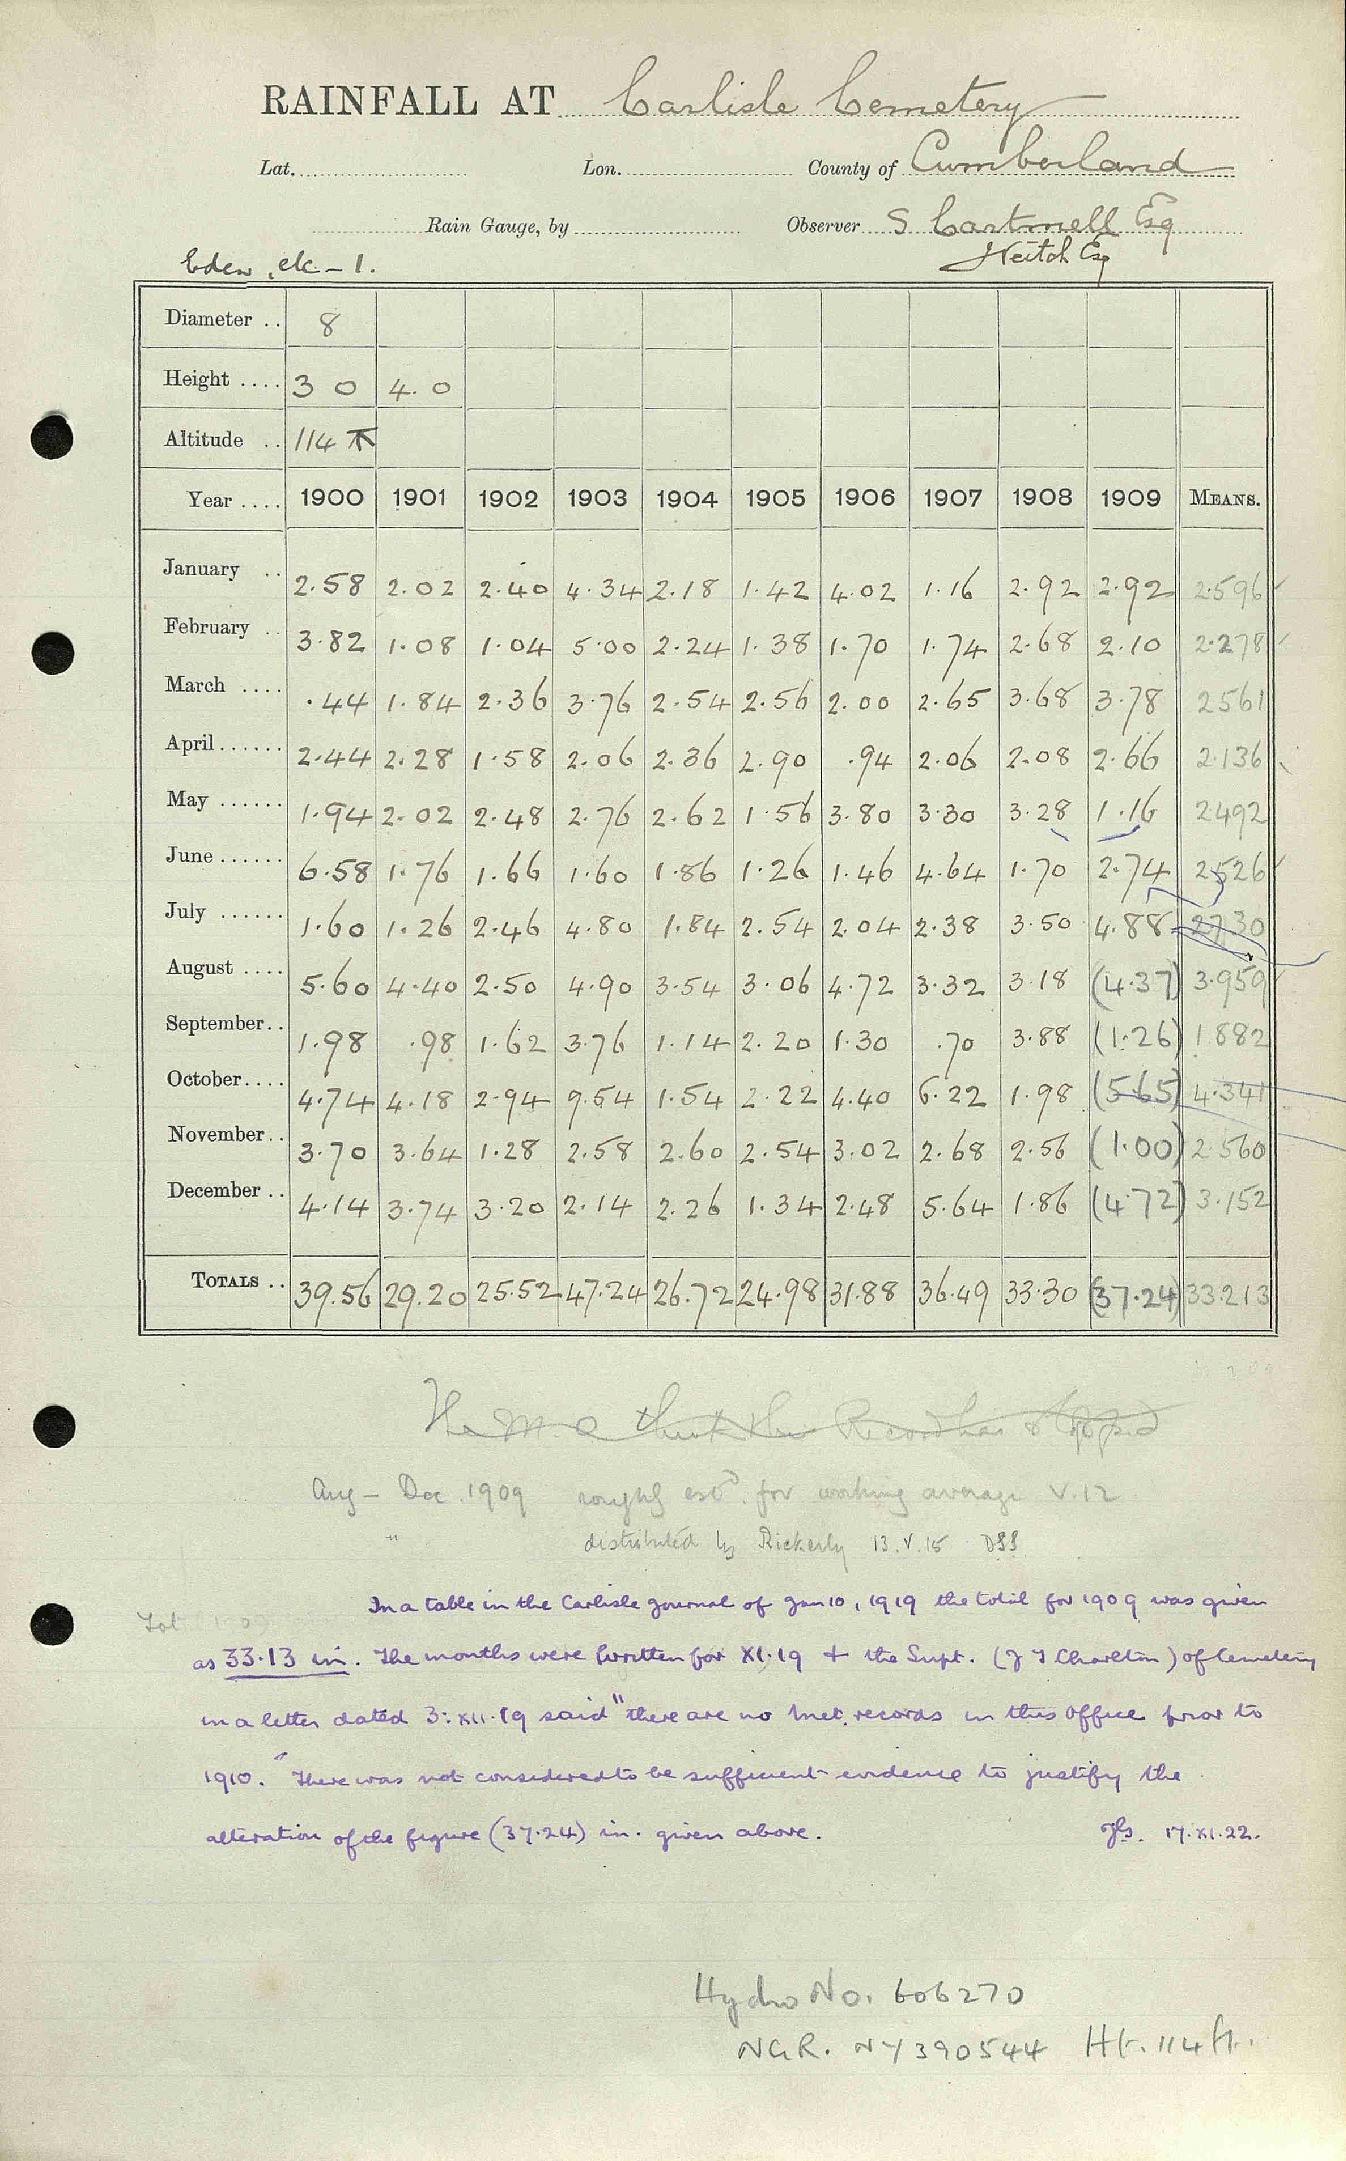 RAINFALL AT Carlisle Cemetery
Lat. Lon. County of Cumberland
Rain Gauge, by Observer S Cartmell Esq
Eden, etc – 1. Heitch Esq
Diameter .. 8
Height .... 3 0 4.0
Altitude .. 114
Year .... 1900 1901 1902 1903 1904 1905 1906 1907 1908 1909 MEANS.
January .. 2.58 2.02 2.40 4.34 2.18 1.42 4.02 1.16 2.92 2.92 2.596
February .. 3.82 1.08 1.04 5.00 2.24 1.38 1.70 1.74 2.68 2.10 2.278
March .... .44 1.84 2.36 3.76 2.54 2.56 2.00 2.65 3.68 3.78 2561
April ...... 2.44 2.28 1.58 2.06 2.36 2.90 .94 2.06 2.08 2.66 2.136
May ...... 1.94 2.02 2.48 2.76 2.62 1.56 3.80 3.30 3.28 1.16 2492
June ...... 6.58 1.76 1.66 1.60 1.86 1.26 1.46 4.64 1.70 2.74 2526
July ...... 1.60 1.26 2.46 4.80 1.84 2.54 2.04 2.38 3.50 4.88 2730
August .... 5.60 4.40 2.50 4.90 3.54 3.06 4.72 3.32 3.18 (4.37) 3.959
September.. 1.98 .98 1.62 3.76 1.14 2.20 1.30 .70 3.88 (1.26) 1.882
October.... 4.74 4.18 2.94 9.54 1.54 2.22 4.40 6.22 1.98 (5.65) 4.341
November.. 3.70 3.64 1.28 2.58 2.60 2.54 3.02 2.68 2.56 (1.00) 2.560
December .. 4.14 3.74 3.20 2.14 2.26 1.34 2.48 5.64 1.86 (4.72) 3.152
TOTALS .. 39.56 29.20 25.52 47.24 26.72 24.98 31.88 36.49 33.30 (37.24) 33.213
The M.O. think this Record has stopped
Aug – Dec. 1909 roughly estd. for working average V.12
" distributed by Rickerby 13.V.15 DSS
In a table in the Carlisle Journal of Jan 10, 1919 the total for 1909 was given
as 33.13 in. The months were written for XI.19 + the Supt. (J T Charlton) of Cemetery
in a letter dated 3.XII.19 said "there are no met. records in this Office prior to
1910." There was not considered to be sufficient evidence to justify the
alteration of the figure (37.24) in. given above. 17.XI.22.
Hydro No. 606270
NGR. NY 390544 Ht. 114 ft.